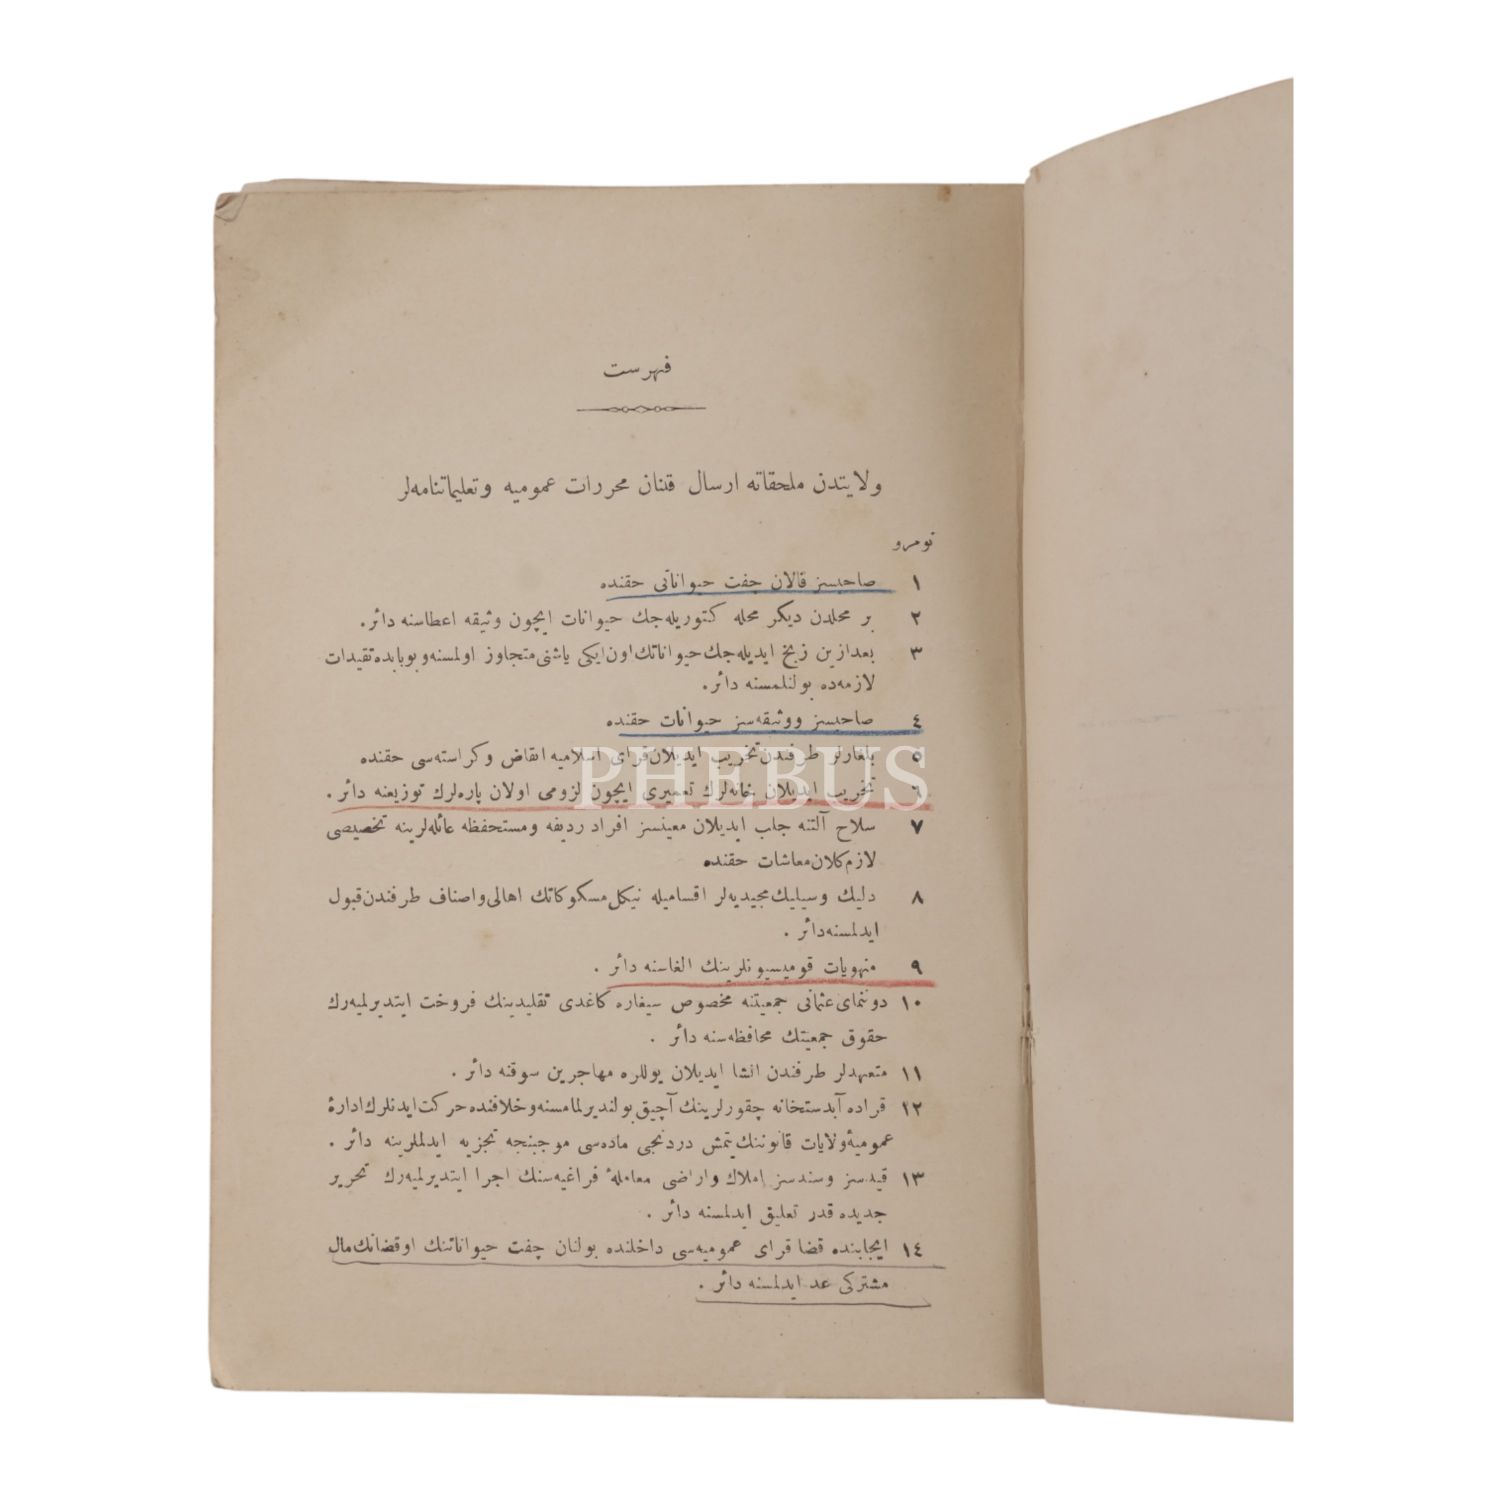 فهرست
ولايتدن ملحقاته ارسال قلنان محررات عموميه وتعليماتنامه‌لر
نومرو
١ صاحبسز قالان چفت حيواناتى حقنده
٢ بر محلدن ديكر محله كتوريله‌جك حيوانات ايچون وثيقه اعطاسنه دائر.
٣ بعدازين زبخ ايديله‌جك حيواناتك اون ايكى ياشنى متجاوز اولمسنه وبوبابده تقيدات
لازمه‌ده بولنلمسنه دائر.
٤ صاحبسز ووثيقه‌سز حيوانات حقنده
٥ بلغارلر طرفندن تخريب ايديلان قراى اسلاميه انقاض وكراسته‌سى حقنده
٦ تخريب ايديلان خانه‌لرك تعميرى ايچون لزومى اولان پاره‌لرك توزيعنه دائر.
٧ سلاح آلتنه جلب ايديلان معينسز افراد رديفه ومستحفظه عائله‌لرينه تخصيصى
لازم‌كلان معاشات حقنده
٨ دليك وسيليك مجيديه‌لر اقساميله نيكل مسكوكاتك اهالى واصناف طرفندن قبول
ايدلمسنه دائر.
٩ منهوبات قوميسيونلرينك الغاسنه دائر.
١٠ دوننماى عثمانى جمعيتنه مخصوص سيغاره كاغدى تقليدينك فروخت ايتديرلميه‌رك
حقوق جمعيتك محافظه‌سنه دائر.
١١ متعهدلر طرفندن انشا ايديلان يوللره مهاجرين سوقنه دائر.
١٢ قراده آبدستخانه چقورلرينك آچيق بولنديرلمامسنه وخلافنده حركت ايدنلرك ادارهٔ
عموميهٔ ولايات قانوننك يتمش دردنجى ماده‌سى موجبنجه تجزيه ايدلملرينه دائر.
١٣ قيدسز وسندسز املاك واراضى معاملهٔ فراغيه‌سنك اجرا ايتديرلميه‌رك تحرير
جديده قدر تعليق ايدلمسنه دائر.
١٤ ايجابنده قضا قراى عموميه‌سى داخلنده بولنان چفت حيواناتنك اوقضانك مال
مشتركى عد ايدلمسنه دائر.
PHEBUS